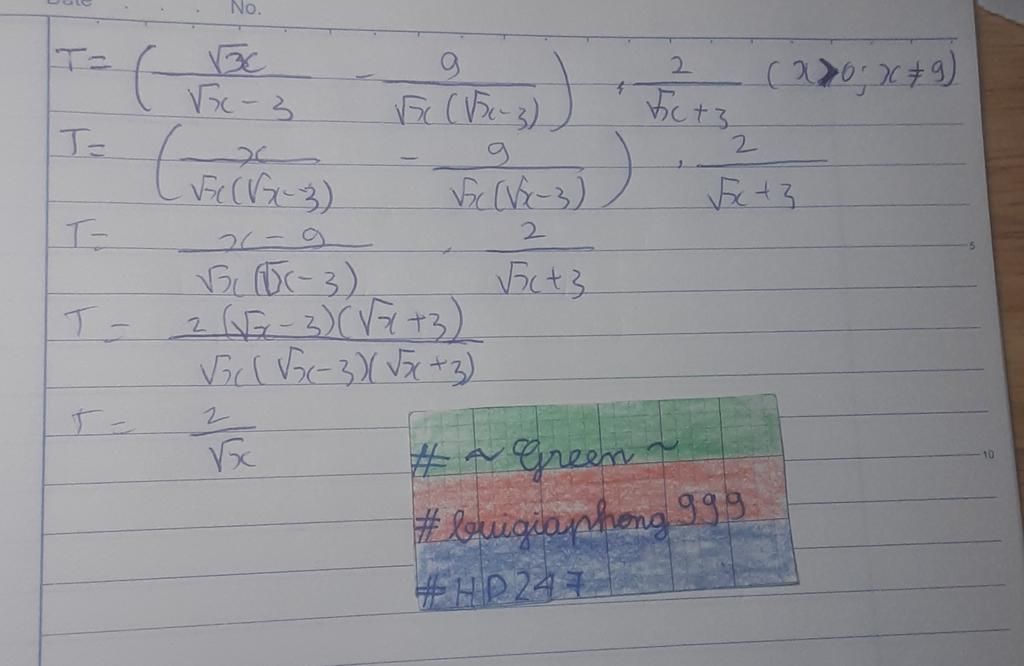 Date No.
T = ( √x / (√x - 3) - 9 / (√x (√x - 3)) ) . 2 / (√x + 3) (x > 0; x ≠ 9)
T = ( x / (√x (√x - 3)) - 9 / (√x (√x - 3)) ) . 2 / (√x + 3)
T = (x - 9) / (√x (√x - 3)) . 2 / (√x + 3)
5
T = 2 (√x - 3)(√x + 3) / (√x (√x - 3)(√x + 3))
T = 2 / √x
# ~ Green ~
10
# buigiaphong 999
# HD247